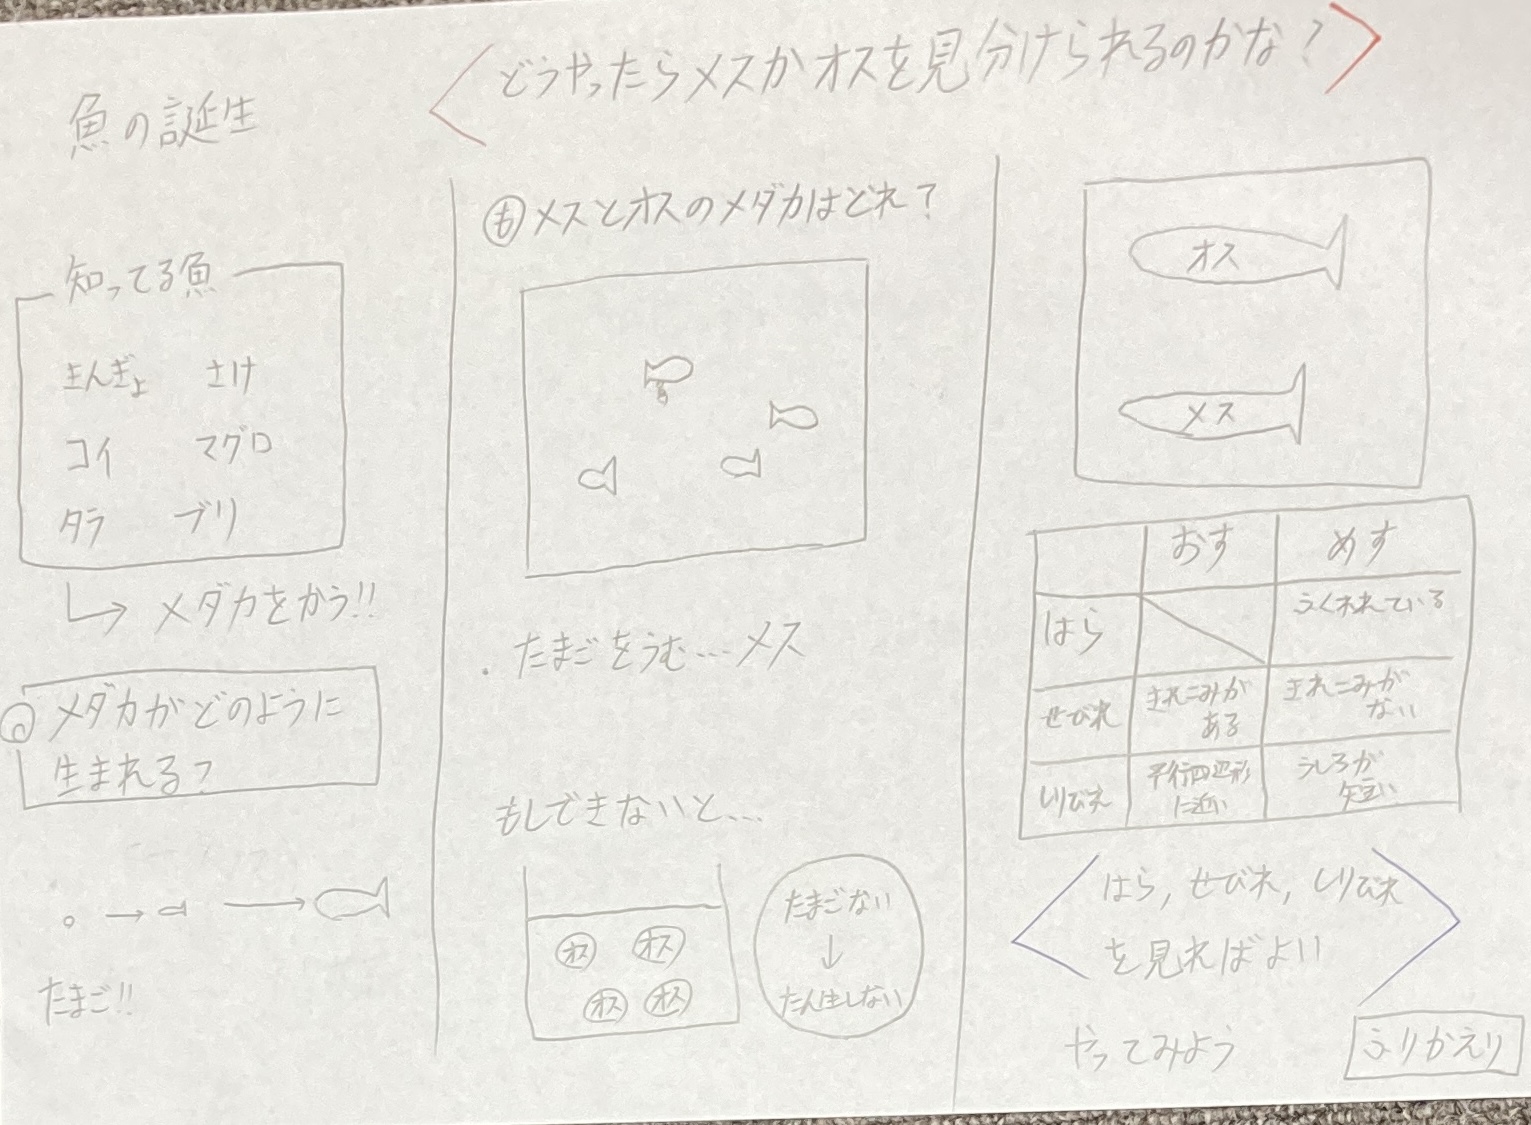 魚の誕生
どうやったらメスかオスを見分けられるのかな?
知ってる魚
きんぎょ さけ
コイ マグロ
タラ ブリ
メダカをかう!!
メダカがどのように
生まれる?
たまご!!
も メスとオスのメダカはどれ?
・たまごをうむ…メス
もしできないと…
オス オス
オス オス
たまごない
↓
たん生しない
オス
メス
おす めす
はら ふくれている
せびれ きれこみが
ある きれこみが
ない
しりびれ 平行四辺形
に近い うしろが
短い
はら,せびれ,しりびれ
を見ればよい
やってみよう ふりかえり